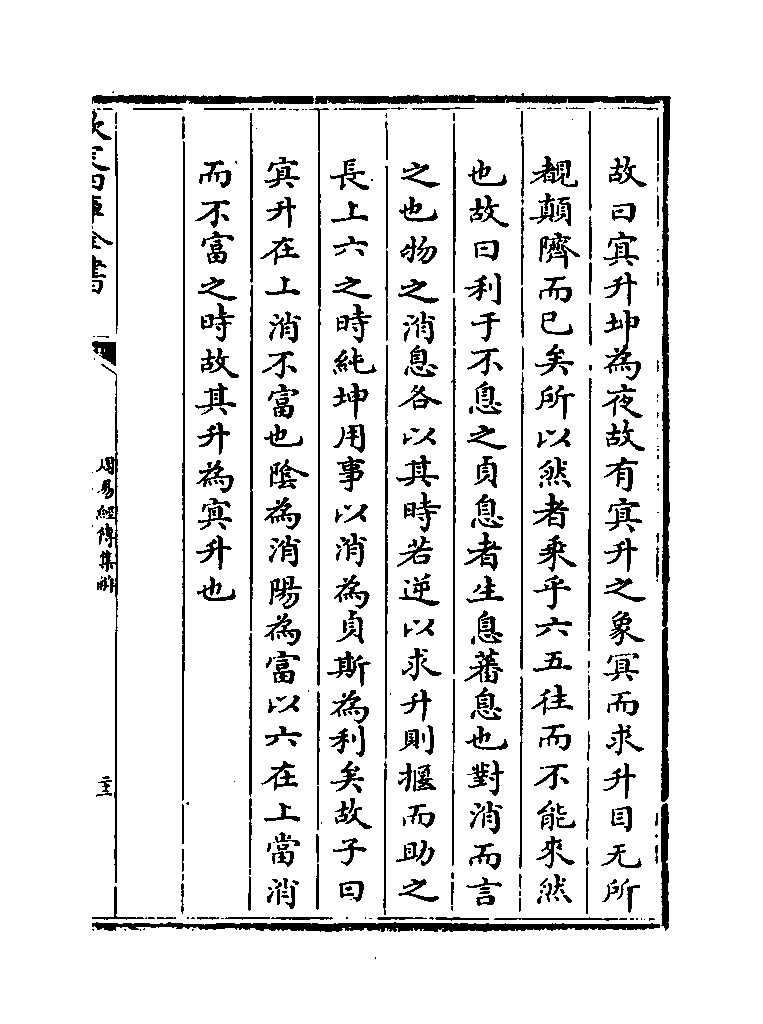 故曰㝠升坤為夜故有㝠升之象㝠而求升目无所
覩顛隮而已矣所以然者乘乎六五往而不能來然
也故曰利于不息之貞息者生息蕃息也對消而言
之也物之消息各以其時若逆以求升則揠而助之
長上六之時純坤用事以消為貞斯為利矣故子曰
㝠升在上消不富也陰為消陽為富以六在上當消
而不富之時故其升為㝠升也
欽定四庫全書
周易經傳集解
二十三